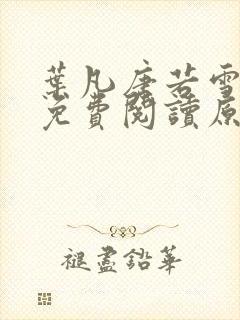 葉凡唐若雪
免費閱讀原
褪盡鉛華